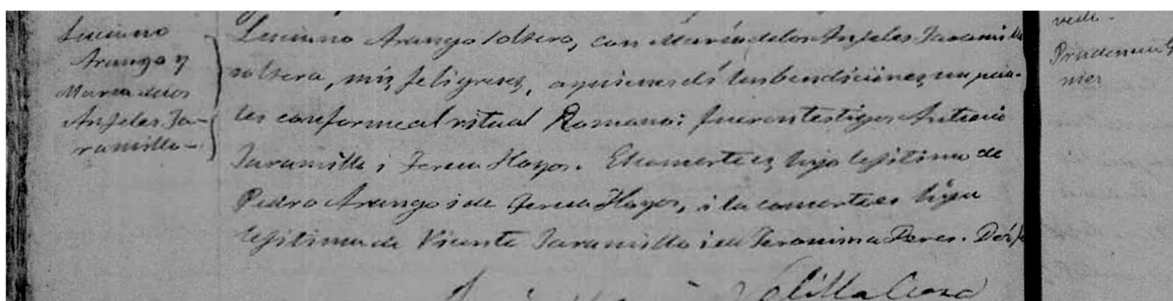 Luciano
Arango y
Maria delos
Anjeles Ja-
ramillo-
Luciano Arango soltero, con María delos Anjeles Jaramillo
soltera, mis feligreses, a quienes dí las bendiciones nupcia-
les conforme al ritual Romano: fueron testigos Antonio
Jaramillo i Teresa Hoyos. El consorte es hijo lejitimo de
Pedro Arango i de Teresa Hoyos, i la consorte es hija
lejitima de Vicente Jaramillo i de Jeronima Peres. Doi fe